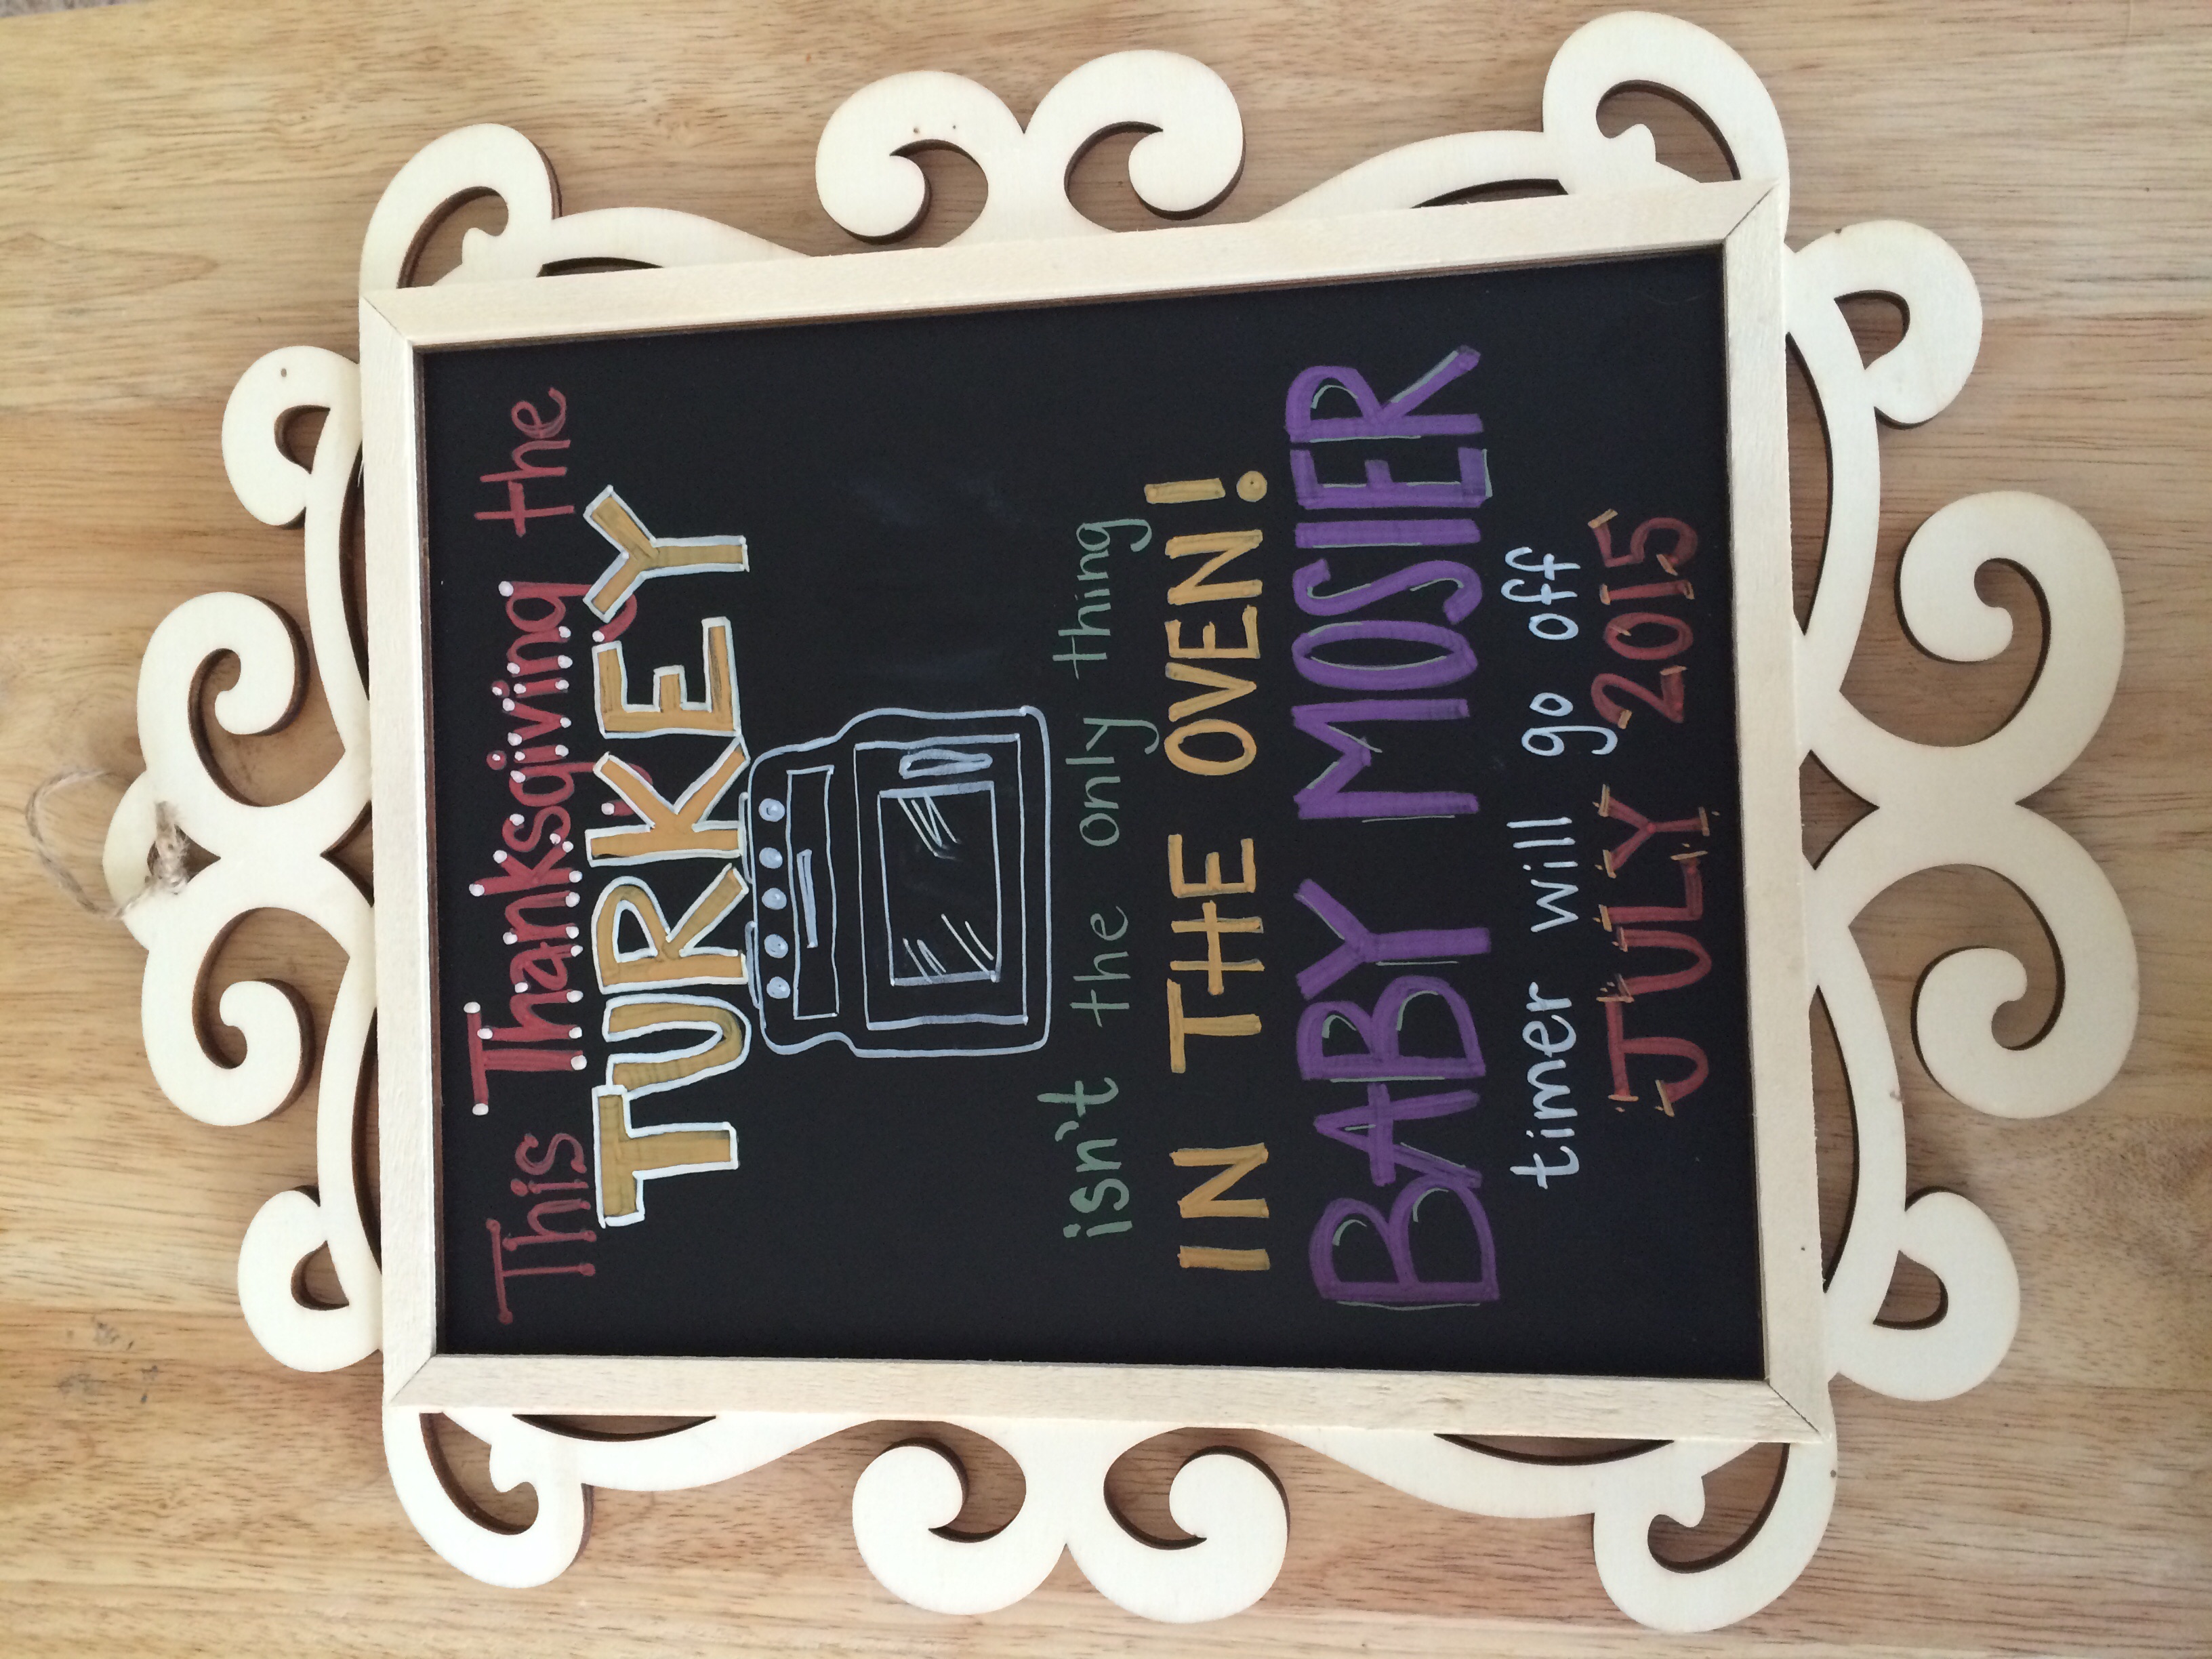 This Thanksgiving the
TURKEY
isn't the only thing
IN THE OVEN!
BABY MOSIER
timer will go off
JULY 2015